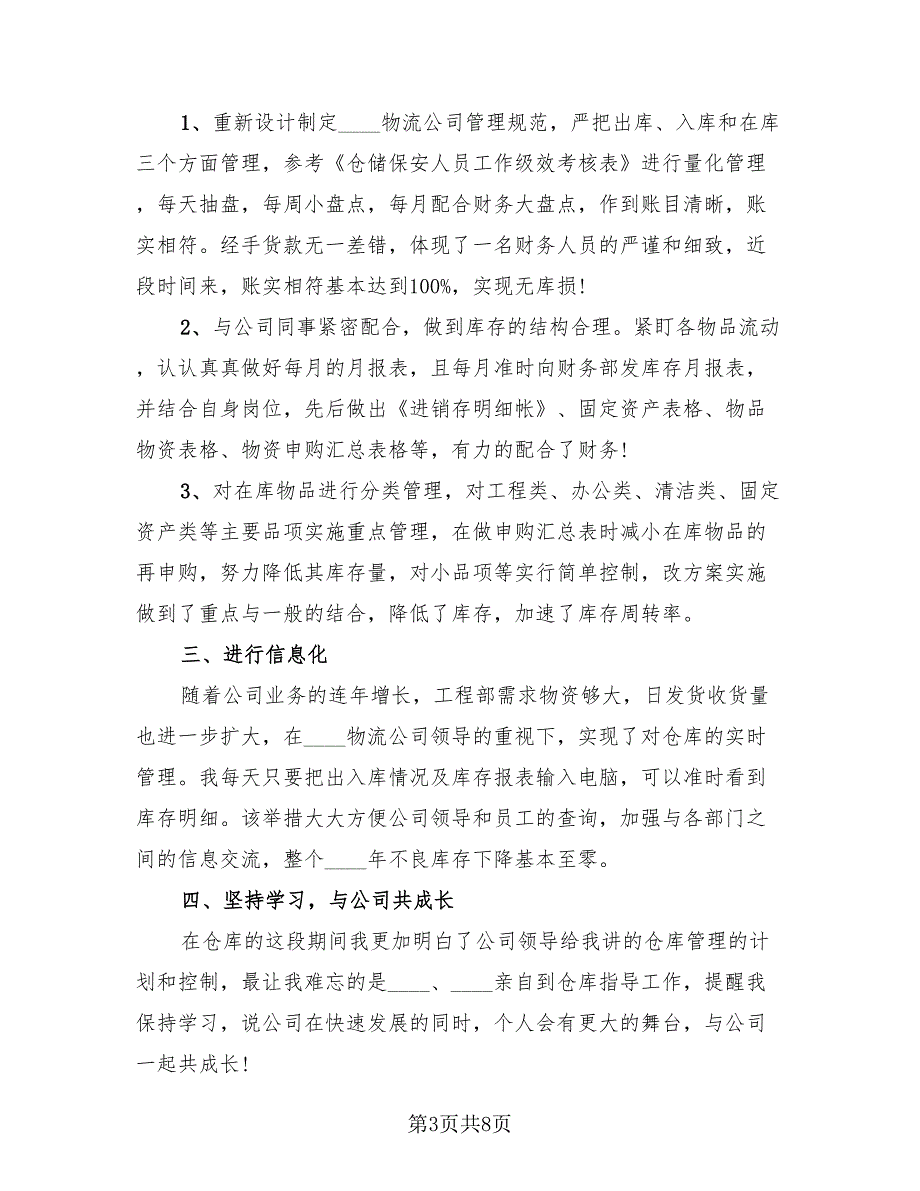 1、重新设计制定____物流公司管理规范，严把出库、入库和在库
三个方面管理，参考《仓储保安人员工作级效考核表》进行量化管理
，每天抽盘，每周小盘点，每月配合财务大盘点，作到账目清晰，账
实相符。经手货款无一差错，体现了一名财务人员的严谨和细致，近
段时间来，账实相符基本达到100%，实现无库损!
2、与公司同事紧密配合，做到库存的结构合理。紧盯各物品流动
，认认真真做好每月的月报表，且每月准时向财务部发库存月报表，
并结合自身岗位，先后做出《进销存明细帐》、固定资产表格、物品
物资表格、物资申购汇总表格等，有力的配合了财务!
3、对在库物品进行分类管理，对工程类、办公类、清洁类、固定
资产类等主要品项实施重点管理，在做申购汇总表时减小在库物品的
再申购，努力降低其库存量，对小品项等实行简单控制，改方案实施
做到了重点与一般的结合，降低了库存，加速了库存周转率。
三、进行信息化
随着公司业务的连年增长，工程部需求物资够大，日发货收货量
也进一步扩大，在____物流公司领导的重视下，实现了对仓库的实时
管理。我每天只要把出入库情况及库存报表输入电脑，可以准时看到
库存明细。该举措大大方便公司领导和员工的查询，加强与各部门之
间的信息交流，整个____年不良库存下降基本至零。
四、坚持学习，与公司共成长
在仓库的这段期间我更加明白了公司领导给我讲的仓库管理的计
划和控制，最让我难忘的是____、____亲自到仓库指导工作，提醒我
保持学习，说公司在快速发展的同时，个人会有更大的舞台，与公司
一起共成长!
第3页共8页